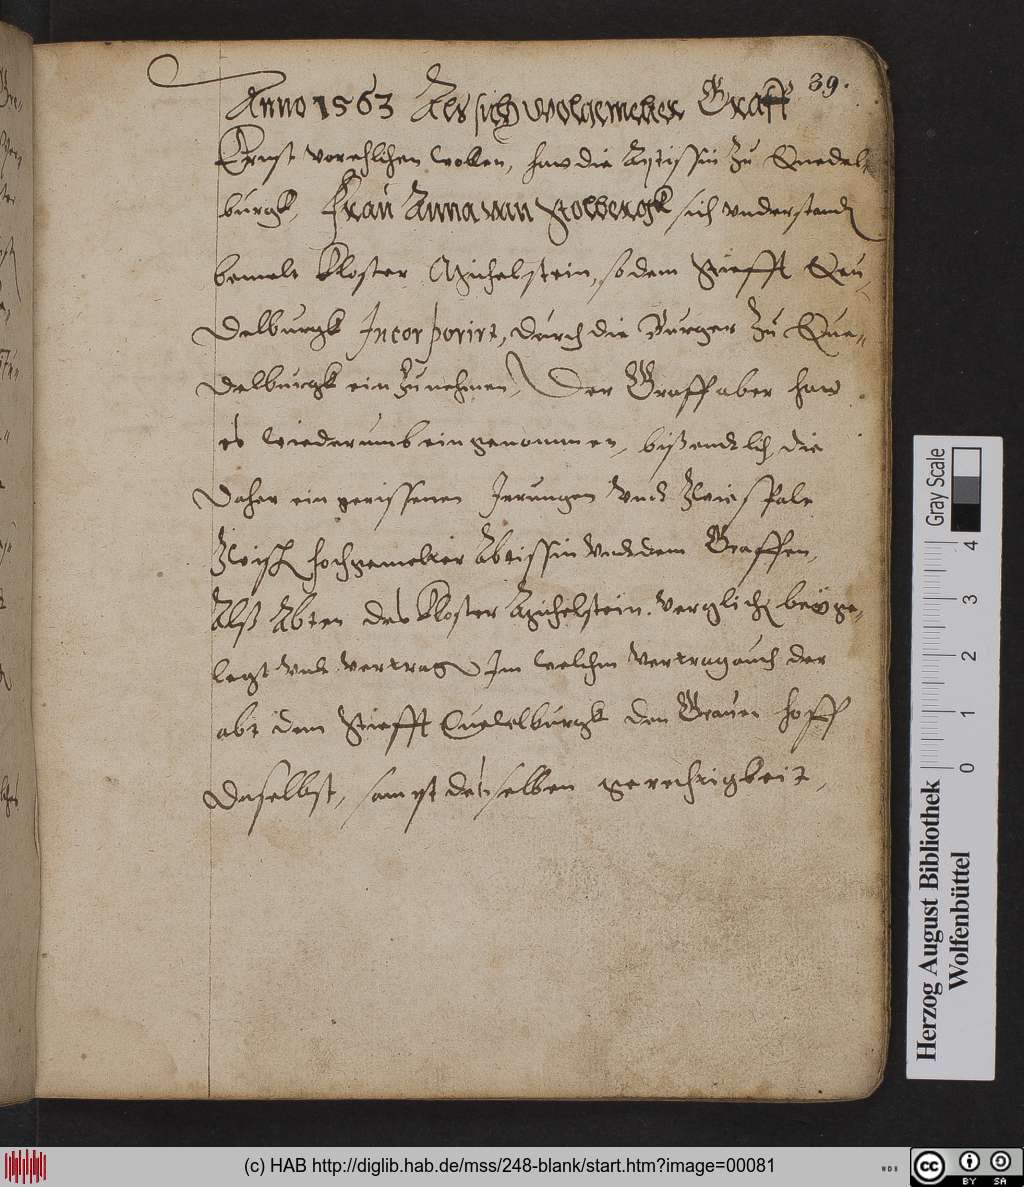 39.
Anno 1563 Als sich wolgemelter Graff
Ernst verehlichen wollen, haw die Aptissin zu Quedel-
burgk, Frau Anna van Stolbergk sich vnderstand
bemelt Kloster Michelstein, so dem Stiefft Que-
delburgk Incorporirt, durch die Burger zu Que-
delburgk ein zunehmen, Der Graff aber haw
es wiederumb eingenommen, biß endtlich, die
Daher eingerissenen Irrungen vnd Zwiespalt
Zwisch hochgemelter Abtissin vnd dem Graffen,
Alß Abten des Kloster Michelstein verglich beyge-
legt vnd vertrag Im welchm vertrag auch der
abt dem Stiefft Quedelburgk den Grauen hoff
daselbst, sampt desselben gerechtigkeit,
Gray Scale
4
3
2
1
0
Herzog August Bibliothek
Wolfenbüttel
(c) HAB http://diglib.hab.de/mss/248-blank/start.htm?image=00081
WDB
cc BY SA